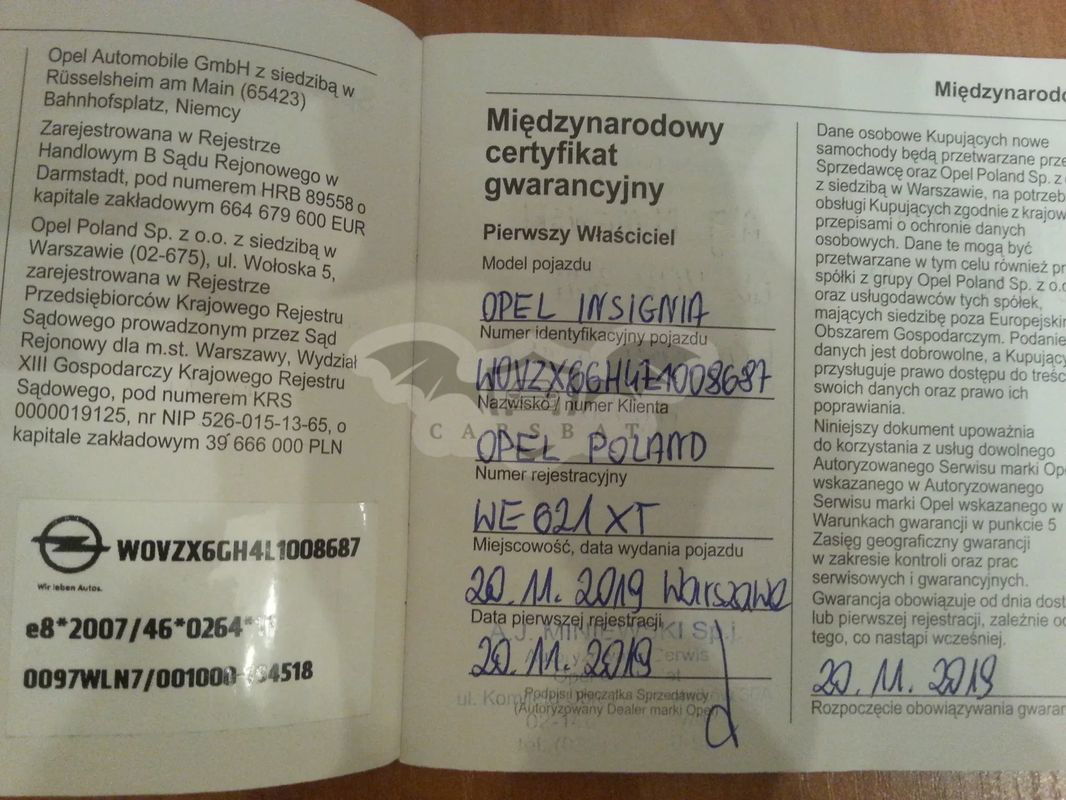 Opel Automobile GmbH z siedzibą w
Rüsselsheim am Main (65423)
Bahnhofsplatz, Niemcy
Zarejestrowana w Rejestrze
Handlowym B Sądu Rejonowego w
Darmstadt, pod numerem HRB 89558 o
kapitale zakładowym 664 679 600 EUR
Opel Poland Sp. z o.o. z siedzibą w
Warszawie (02-675), ul. Wołoska 5,
zarejestrowana w Rejestrze
Przedsiębiorców Krajowego Rejestru
Sądowego prowadzonym przez Sąd
Rejonowy dla m.st. Warszawy, Wydział
XIII Gospodarczy Krajowego Rejestru
Sądowego, pod numerem KRS
0000019125, nr NIP 526-015-13-65, o
kapitale zakładowym 39 666 000 PLN
W0VZX6GH4L1008687
Wir leben Autos.
e8*2007/46*0264*
0097WLN7/001000
Międzynarodo
Międzynarodowy
certyfikat
gwarancyjny
Pierwszy Właściciel
Model pojazdu
OPEL INSIGNIA
Numer identyfikacyjny pojazdu
W0VZX6GH4L1008687
Nazwisko / numer Klienta
CARSBAT
OPEL POLAND
Numer rejestracyjny
WE 621 XT
Miejscowość, data wydania pojazdu
20.11.2019 Warszawa
Data pierwszej rejestracji
A.J. MINIEWSKI Sp.j.
20.11.2019
Podpis i pieczątka Sprzedawcy
(Autoryzowany Dealer marki Opel)
Dane osobowe Kupujących nowe
samochody będą przetwarzane prze
Sprzedawcę oraz Opel Poland Sp. z o
z siedzibą w Warszawie, na potrzeb
obsługi Kupujących zgodnie z krajow
przepisami o ochronie danych
osobowych. Dane te mogą być
przetwarzane w tym celu również pr
spółki z grupy Opel Poland Sp. z o.o
oraz usługodawców tych spółek,
mających siedzibę poza Europejskim
Obszarem Gospodarczym. Podanie
danych jest dobrowolne, a Kupujący
przysługuje prawo dostępu do treśc
swoich danych oraz prawo ich
poprawiania.
Niniejszy dokument upoważnia
do korzystania z usług dowolnego
Autoryzowanego Serwisu marki Ope
wskazanego w Autoryzowanego
Serwisu marki Opel wskazanego w
Warunkach gwarancji w punkcie 5
Zasięg geograficzny gwarancji
w zakresie kontroli oraz prac
serwisowych i gwarancyjnych.
Gwarancja obowiązuje od dnia dost
lub pierwszej rejestracji, zależnie od
tego, co nastąpi wcześniej.
20.11.2019
Rozpoczęcie obowiązywania gwaran